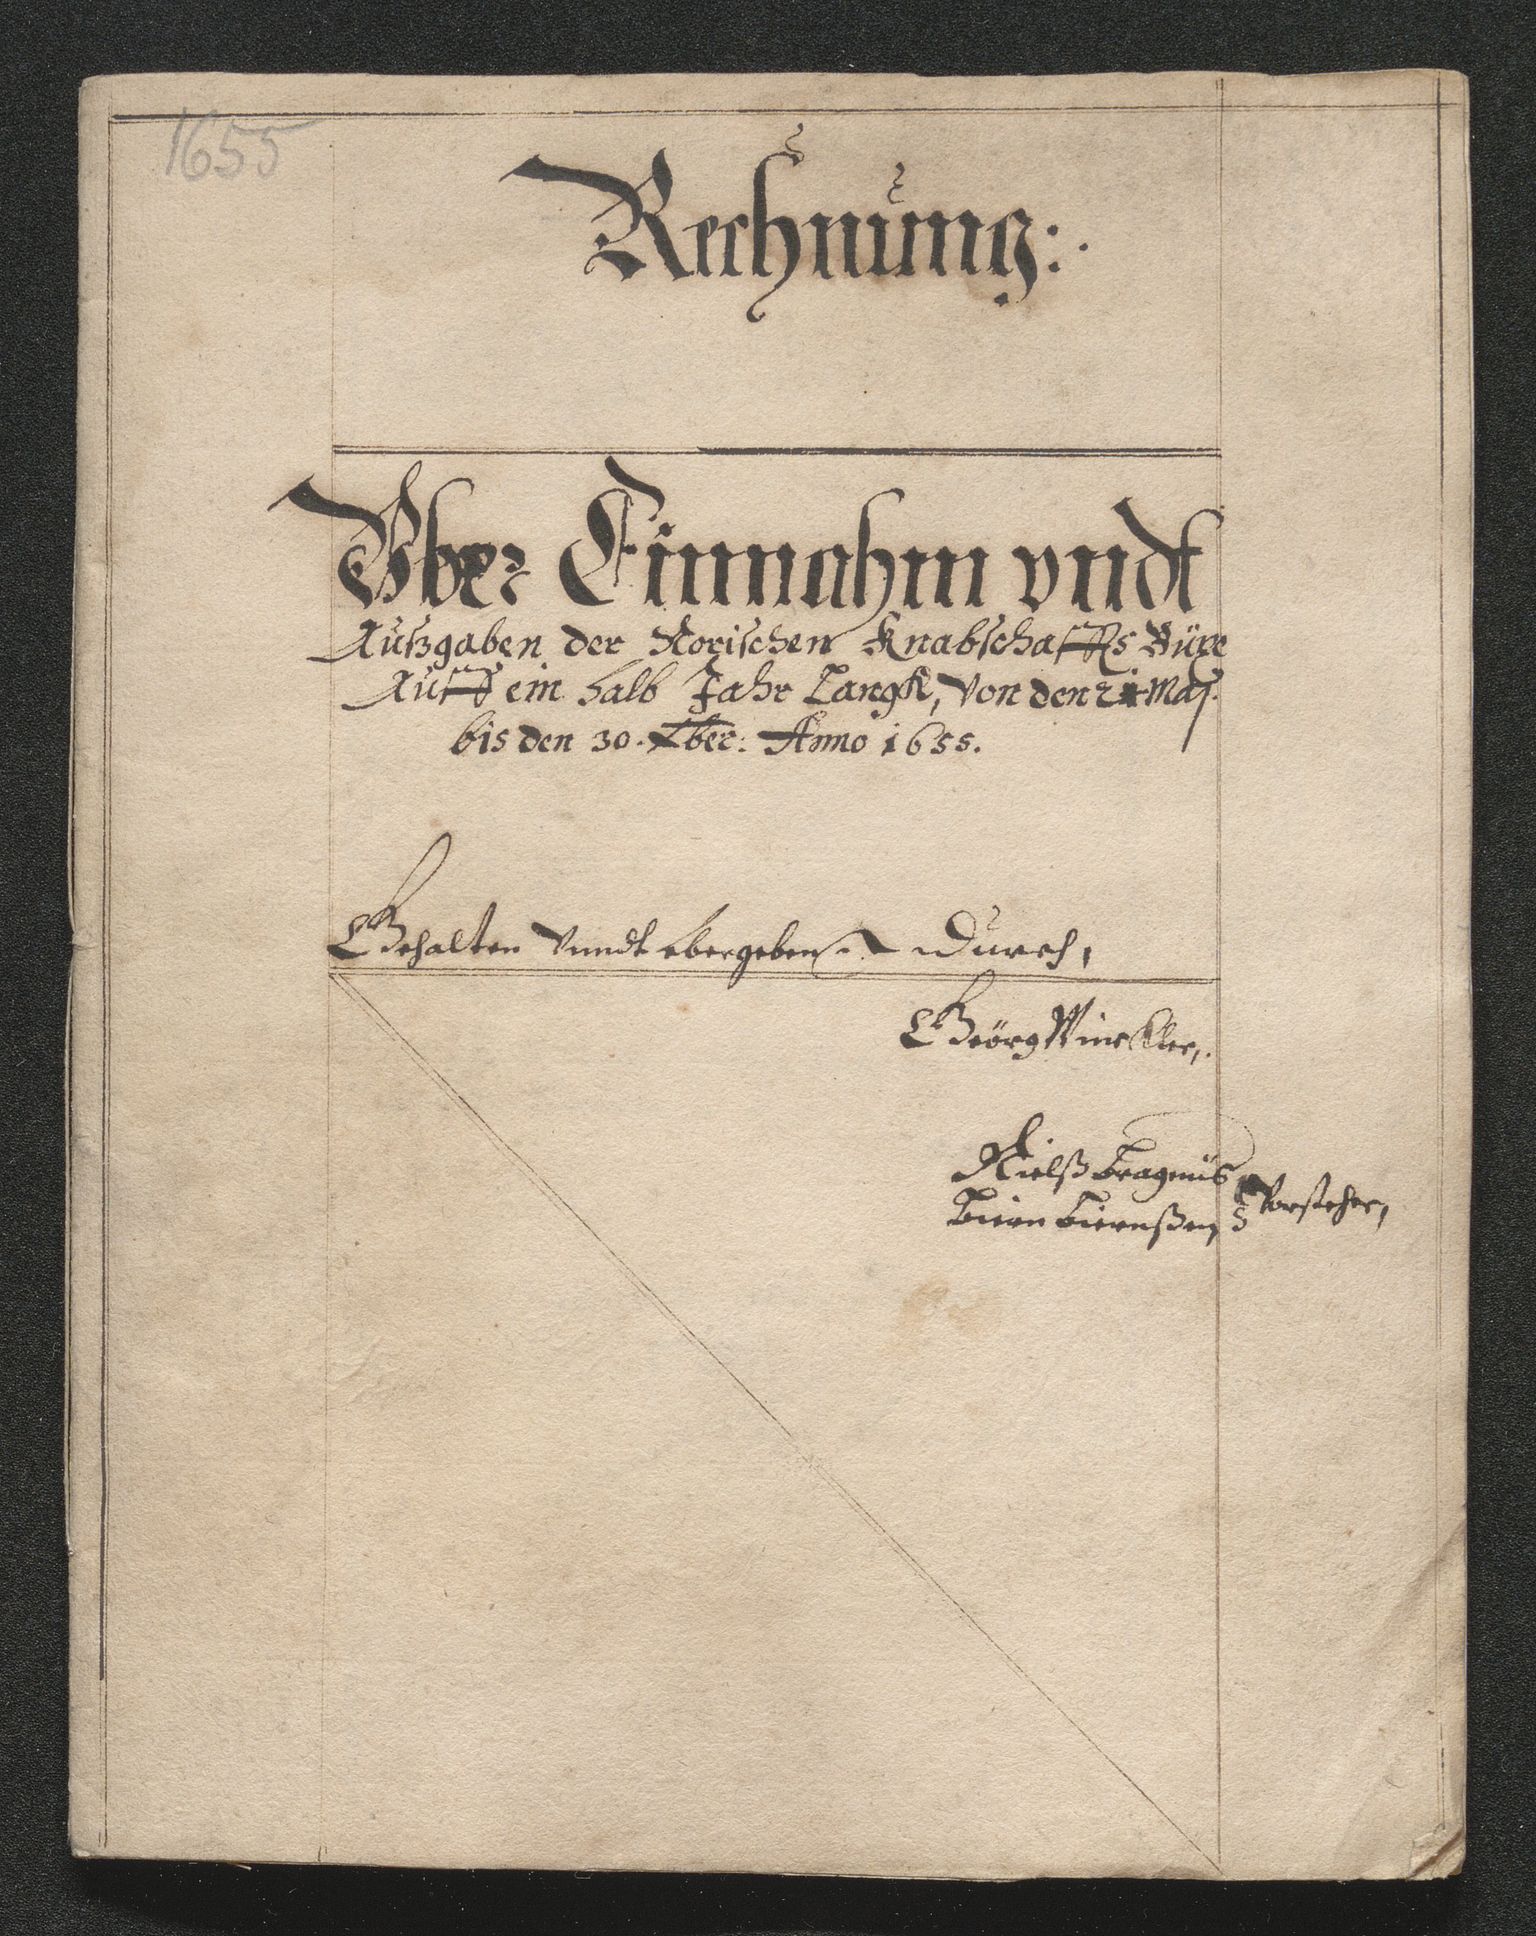 1655
Rechnung:.
Vber Einnahm vndt
Außgaben der Norischen Knabschaffts Büxe
Auff ein halb Jahr Langk, Von den Maÿ.
bis den 30. Anno 1655.
Gehalten Vnndt ebergeben Durch,
Geörg Winckler,.
Nielß Vorsteher,
Biörn